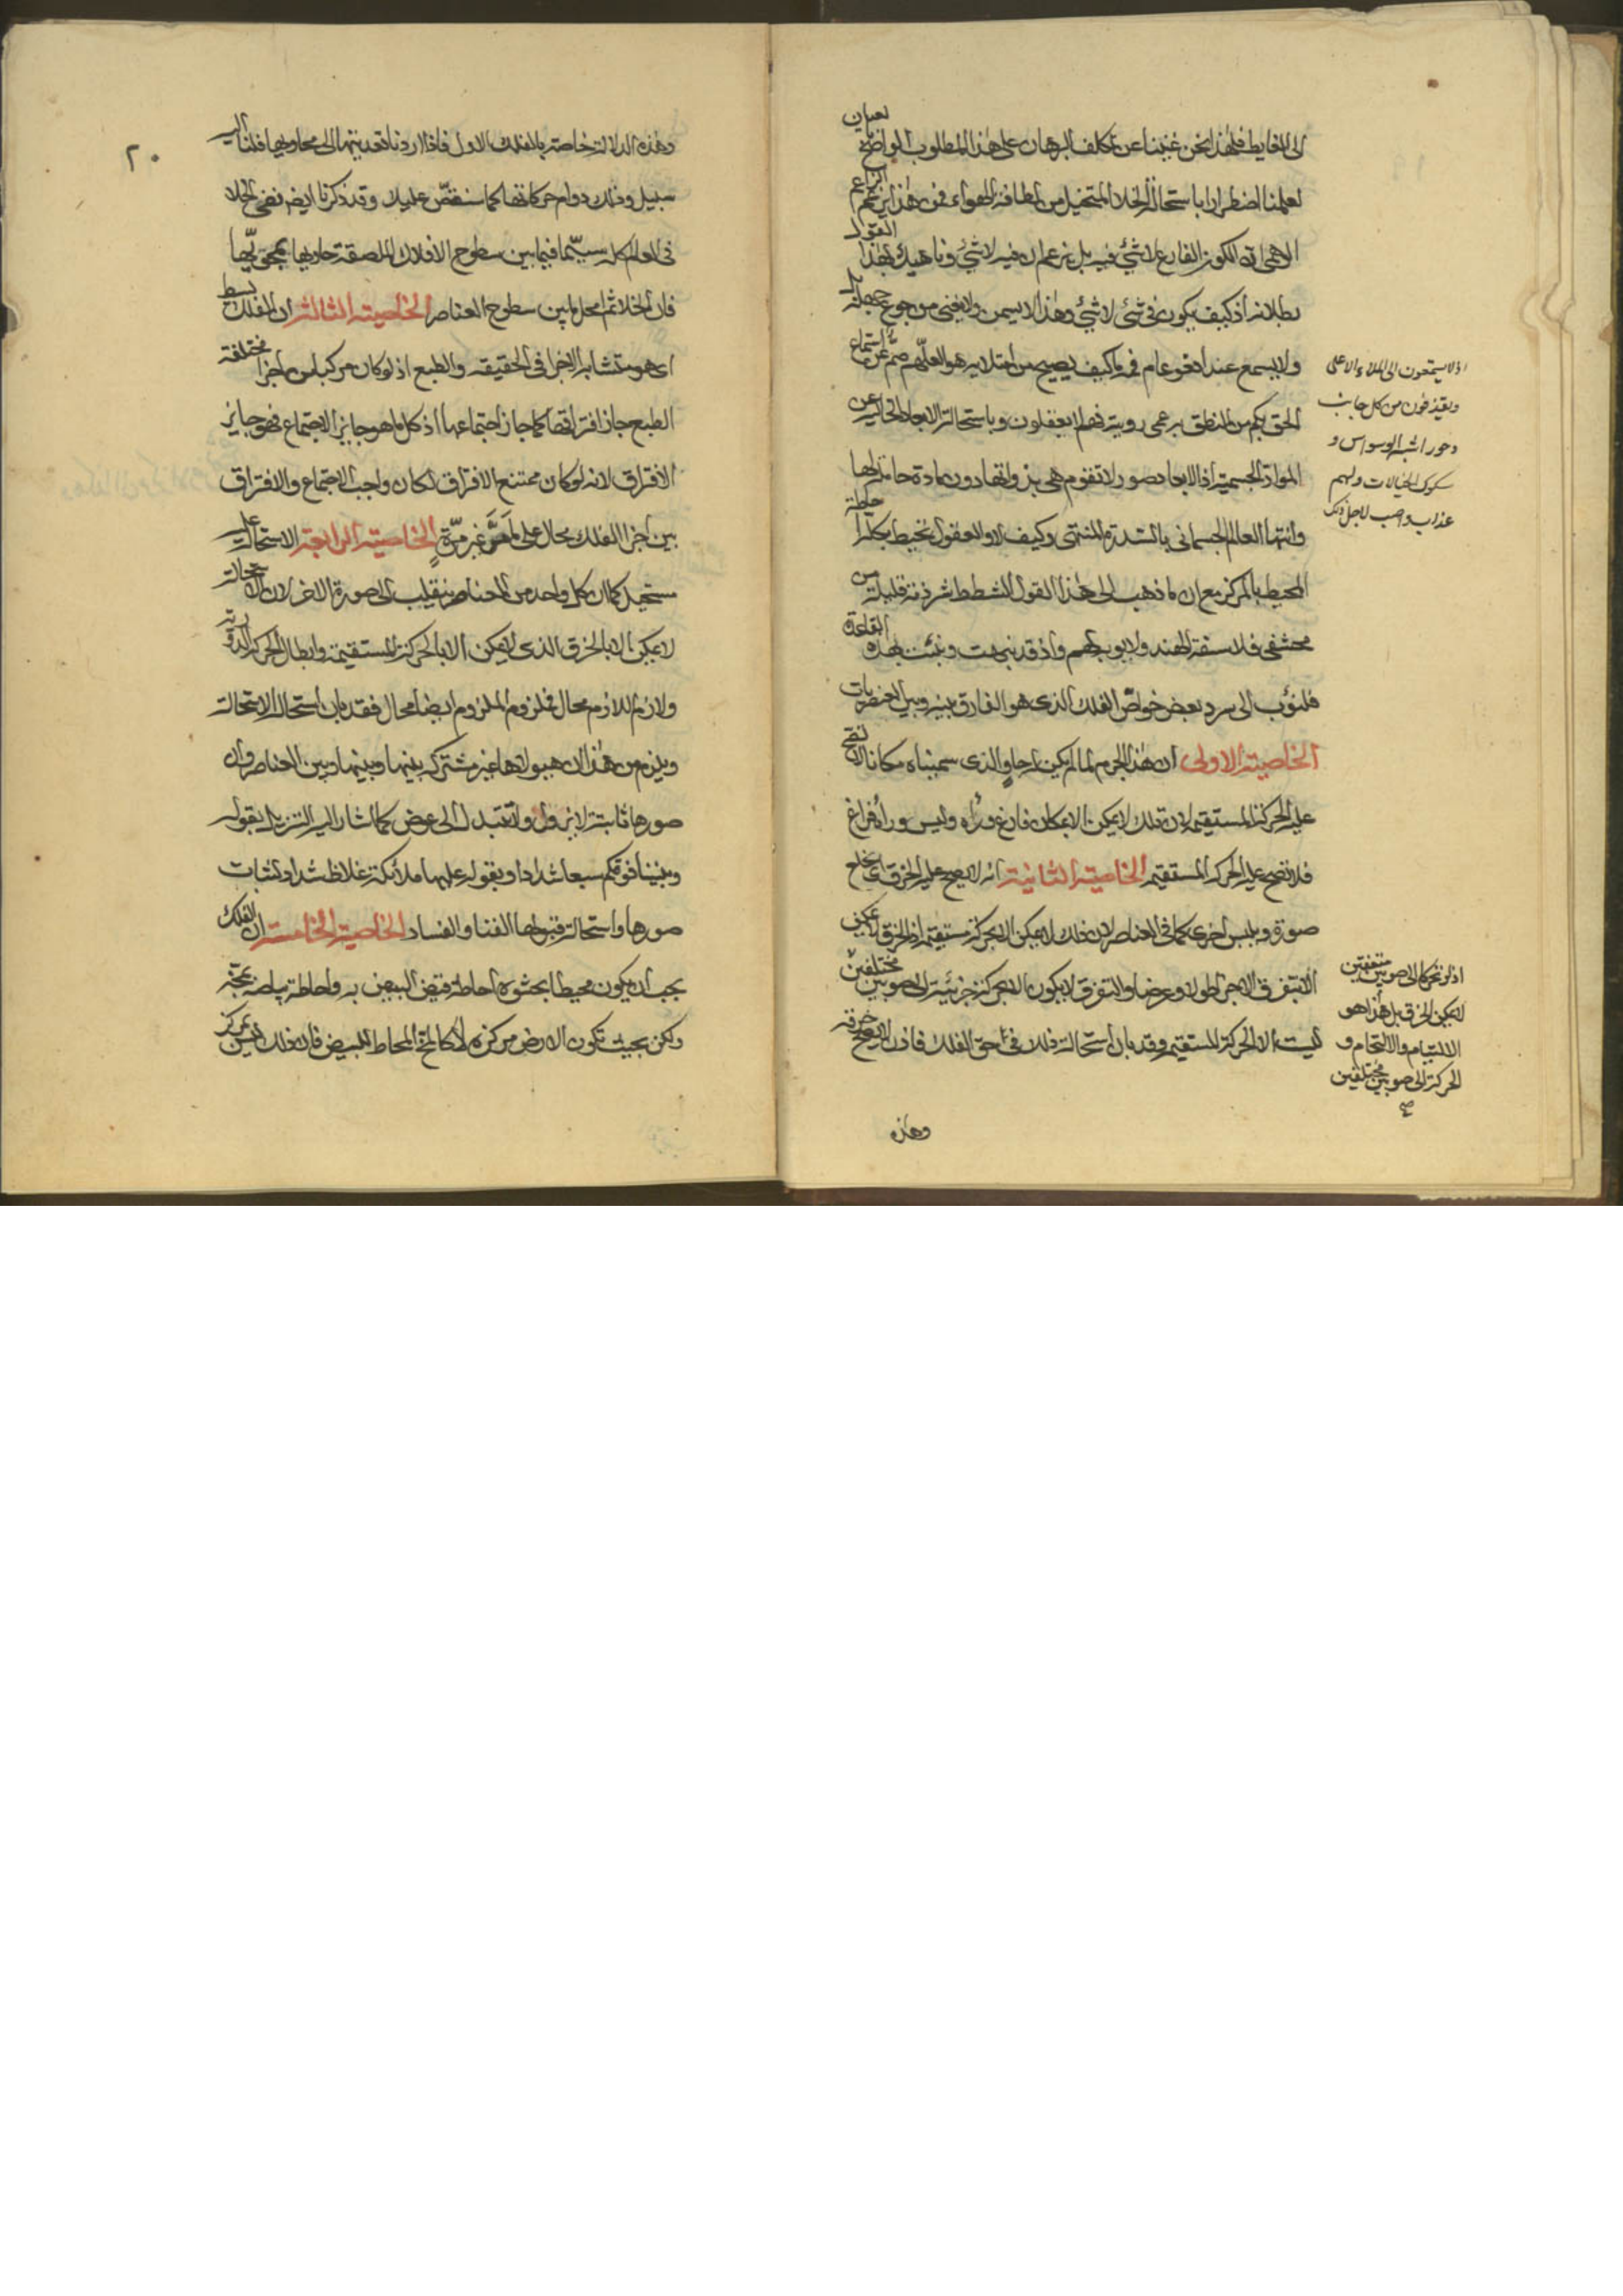 الى الغايط فلهذا نحن غنينا عن تكالف البرهان على هذا المطلوب الواضح بعيان
لعلمنا اضطرارا باستحالة الخلاء المتخيل من لطافة الهواء فمن هذا يزعم الزاعم
الاهمى ان الكون الفارغ لا شئ فيه بل يزعم ان فيه لا شئ وناهيك بهذا القول
بطلانه اذ كيف يكون في شئ لا شئ وهذا لا يسمن ولا يغنى من جوع جهله
ولا يسمع عند اهو عام في كيف يصيح من اهو لعلهم صم عن استماع
الحق بكم من المنطق به عمى رويته فهم لا يعقلون وباستحالة الابعاد الخالية عن
المواد الجسمية اذ الابعاد صور لا تقوم هى بذواتها دون مادة حاملة لها
وانتهاء العالم الجسمانى بالسدرة المنتهى وكيف لا والعقول تحيط بكلها حيطة
المحيط بالمركز مع ان ما ذهب الى هذا القول الشطط شرذمة قليلة من
محشفى فلاسفة الهند ولا يوبه بهم واذ قد نبهت ونبئت بهذه القاعدة
فلنؤب الى سرد بعض خواص الفلك الذى هو الفارق بينه وبين العنصريات
الخاصية الاولى ان هذا الجرم لما لم يكن له حاو الذى سميناه مكانا لا تصح
عليه الحركة المستقيمة لان تلك لا يمكن الا بمكان فارغ وراه وليس وراه فراغ
فلا تصح عليه الحركة المستقيمة الخاصية الثانية انه لا يصح عليه الخرق اى يخلع
صورة ويلبس اخرى كما فى العناصر لان ذلك لا يمكن الا بحركة مستقيمة اذ الخرق لا يمكن
الا بتفرق الاجزا طولا وعرضا والتفرق لا يكون الا بحركة جزئية الى صوبين مختلفين
ليست الا الحركة المستقيمة وقد بان استحالة ذلك فى حق الفلك فاذن لا يصح خرقه
اذ لا يستمعون الى الملاء الاعلى
ويقذفون من كل جانب
دحورا شبه الوسواس و
سكوك الخيالات ولهم
عذاب واصب لاجل ذلك
اذ لو تحركا الى صوبين متفقين
لا يمكن الخرق بل هذا هو
الالتيام والالتحام و
الحركة الى صوبين مختلفين
صح
وهذه
٢٠
وهذه الدلالة خاصة بالفلك الاول فاذا اردنا تعديتها الى محاويها فلنا اليه
سبيل وذلك دوام حركاتها كما سنقص عليك وقد ذكرنا ايضا نفى الخلا
فى العالم كله سيما فيما بين سطوح الافلاك الملصقة حاويها بمحويها
فان الخلا ثم امحل مما بين سطوح العناصر الخاصية الثالثة ان الفلك بسيط
اى هو متشابه الاجزا فى الحقيقه والطبع اذ لو كان مركبا من اجزا مختلفة
الطبع جاز افتراقها كما جاز اجتماعها اذ كل ما هو جايز الاجتماع فهو جايز
الافتراق لانه لو كان ممتنع الافتراق لكان واجب الاجتماع والافتراق
بين اجزا الفلك محال على ما مر غير مرة الخاصية الرابعة الاستحالة عليه
مستحيل كما ان كل واحد من العناصر ينقلب الى صورة الاخر لان الاستحالة
لا يمكن الا بالخرق الذى لا يمكن الا بالحركة المستقيمة وابطال الحركة الدورية
ولازم اللازم محال فملزوم الملزوم ايضا محال فقد بان استحالة الاستحالة
ويلزم من هذا ان هيولاتها غير مشتركه بينها وبينها وبين العناصر وان
صورها ثابتة لا يزول ولا تتبدل الى عوض كما اشار اليه التنزيل بقوله
وبنينا فوقكم سبعا شدادا وبقوله عليها ملائكة غلاظ شداد لثبات
صورها واستحالة قبولها الفنا والفساد الخاصية الخامسة ان الفلك
يجب ان يكون محيطا بحشوه احاطة قيض البيض به واحاطة بياضه بمحه
ولكن بحيث تكون الارض مركزه لا كالمح المحاط للبيض فان ذلك ليس بمركز